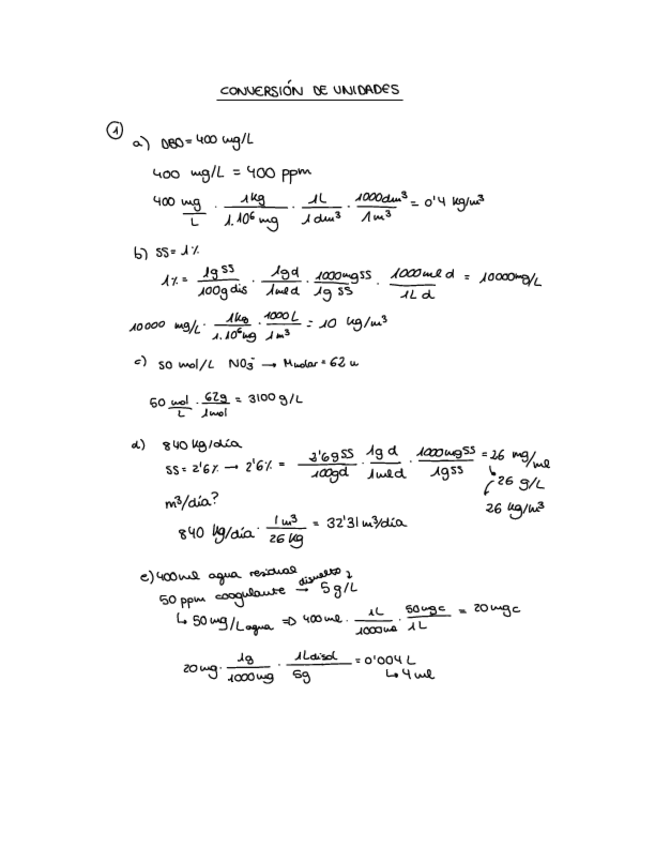 CONVERSIÓN DE UNIDADES
① a) DBO = 400 mg/L
400 mg/L = 400 ppm
400 mg/L · 1kg/1·10⁶ mg · 1L/1 dm³ · 1000dm³/1m³ = 0'4 kg/m³
b) SS = 1%
1% = 1g SS/100g dis · 1g d/1ml d · 1000mg SS/1g SS · 1000ml d/1L d = 10000mg/L
10000 mg/L · 1kg/1·10⁶mg · 1000L/1m³ = 10 kg/m³
c) 50 mol/L NO₃⁻ → Mmolar = 62 u
50 mol/L · 62g/1mol = 3100 g/L
d) 840 kg/día
SS = 2'6% → 2'6% = 2'6g SS/100g d · 1g d/1ml d · 1000mg SS/1g SS = 26 mg/ml
↪ 26 g/L
m³/día?
26 kg/m³
840 kg/día · 1m³/26 kg = 32'31 m³/día
e) 400ml agua residual
50 ppm coagulante disuelto → 5 g/L
↳ 50mg/L agua ⇒ 400 ml · 1L/1000ml · 50mg c/1L = 20mg c
20mg · 1g/1000mg · 1L disol/5g = 0'004 L
↳ 4 ml